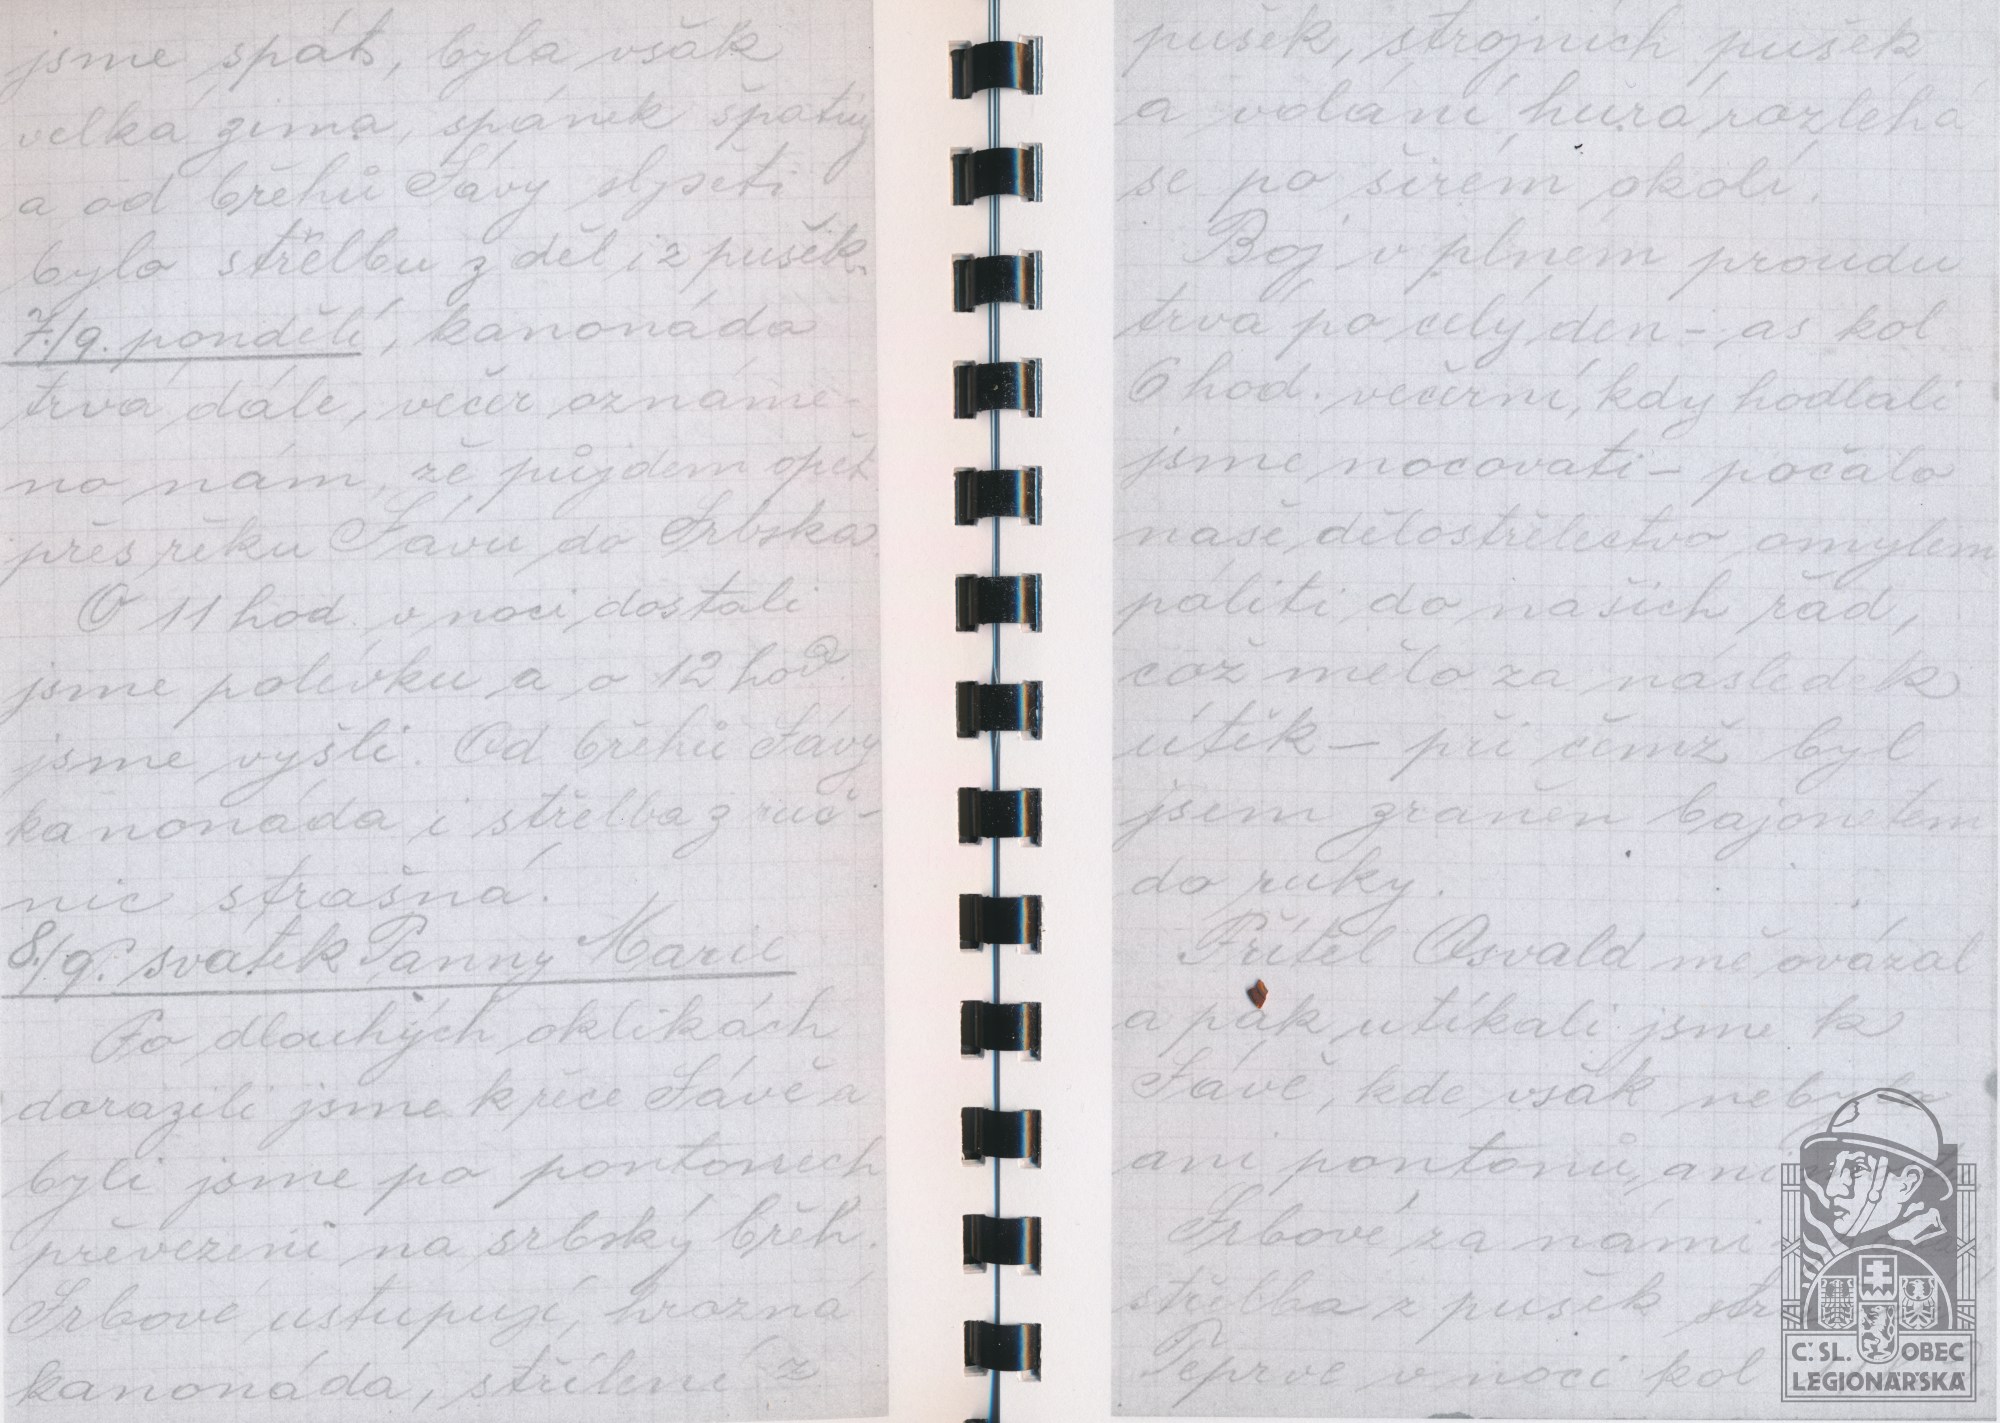 jsme spát, byla však
velká zima, spánek špatný
a od břehů Sávy slyšeti
bylo střelbu z děl i z pušek.
7./9. pondělí, kanonáda
trvá dále, večer oznáme-
no nám, že půjdem opět
přes řeku Sávu do Srbska.
O 11 hod. v noci dostali
jsme polévku a o 12 hod.
jsme vyšli. Od břehů Sávy
kanonáda i střelba z ruč-
nic strašná.
8./9. svátek Panny Marie
Po dlouhých oklikách
dorazili jsme k řece Sávě a
byli jsme po pontonech
převezeni na srbský břeh.
Srbové ustupují, hrozná
kanonáda, střílení z
pušek, strojních pušek
a volání hurá rozléhá
se po širém okolí.
Boj v plném proudu
trvá po celý den – as kol
6 hod. večerní, kdy hodlali
jsme nocovati – počalo
naše dělostřelectvo omylem
páliti do našich řad,
což mělo za následek
útěk – při čemž byl
jsem zraněn bajonetem
do ruky.
Přítel Osvald mě ovázal
a pak utíkali jsme k
Sávě, kde však nebylo
ani pontonů, ani
Srbové za námi
střelba z pušek
Teprve v noci kol
Č. SL. OBEC
LEGIONÁŘSKÁ